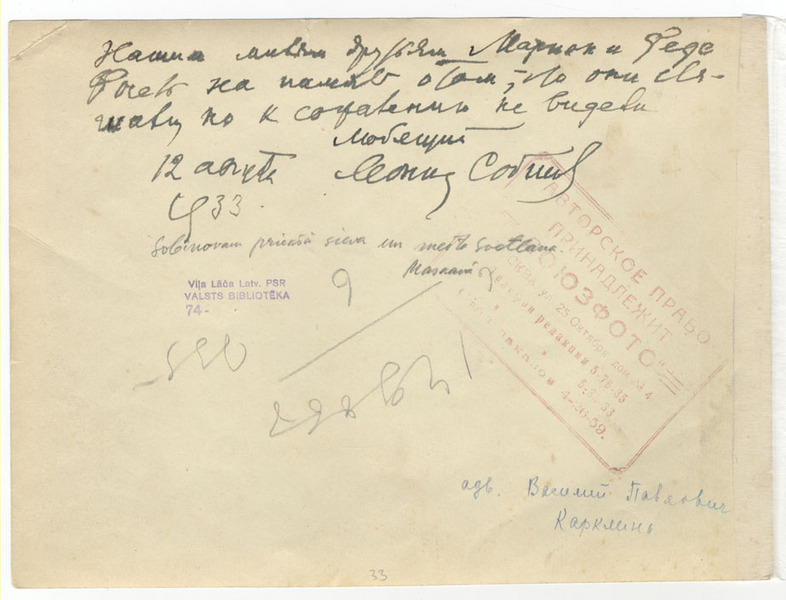 Нашим милым друзьям Марион и Феде
на память о том, что они слы-
шали но к сожалению не видели
Любящий
12 августа Леонид Собинов
33.
Sobinovam priekšā sieva un meita Svetlana.
Maskavā
9
Viļa Lāča Latv. PSR
VALSTS BIBLIOTĒKA
74-
АВТОРСКОЕ ПРАВО
ПРИНАДЛЕЖИТ
"СОЮЗФОТО"
МОСКВА, ул. 25 Октября, дом № 4
редакции 5-78-35
4-26-59.
адв. Василий Павлович
Карклинь
33